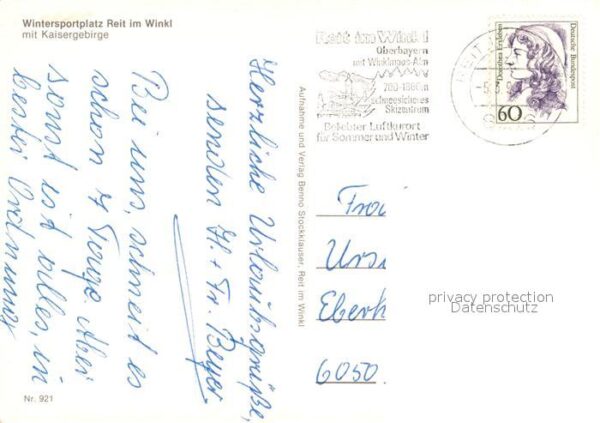 Wintersportplatz Reit im Winkl
mit Kaisergebirge
Herzliche Urlaubsgrüße,
senden H. + Fr. Beyer.
Bei uns, schneit es
schon 4 Tage Aber
sonst ist alles in
bester Ordnung
Nr. 921
Aufnahme und Verlag Benno Stockklauser, Reit im Winkl
Reit im Winkl
Oberbayern
mit Winklmoos-Alm
700-1860m
schneesicheres
Skizentrum
Beliebter Luftkurort
für Sommer und Winter
REIT I
Dorothea Erxleben
Deutsche Bundespost
60
Ursi
Eberh
6050
privacy protection
Datenschutz